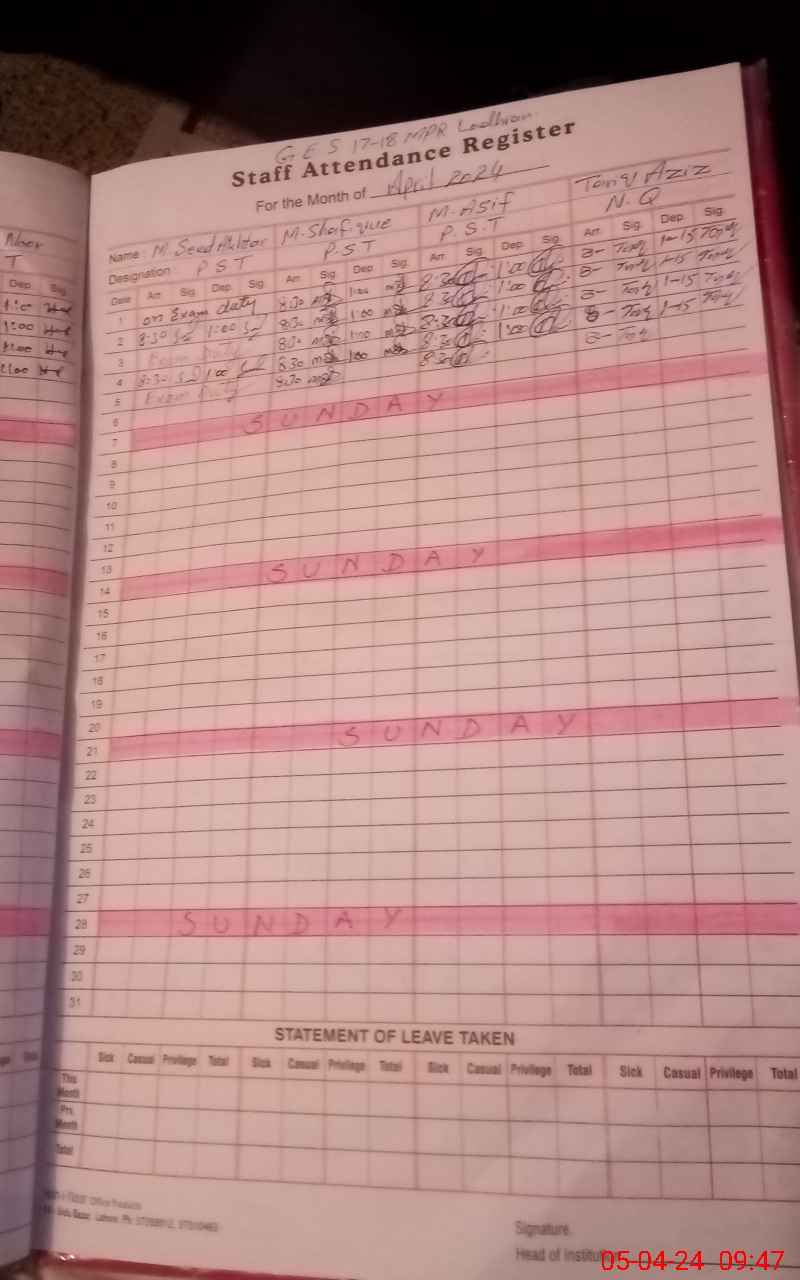 G E S 17-18 MPR Lodhran
Staff Attendance Register
For the Month of April 2024
Name : M. Saeed Akhtar M. Shafique M. Asif Tariq Aziz
Designation : P S T P.S.T P.S.T N.Q
Date Arr. Sig. Dep. Sig. Arr. Sig. Dep. Sig. Arr. Sig. Dep. Sig. Arr. Sig. Dep. Sig.
1 on Exam duty 8:30 1:00 8:30 1:00 8- 1-15
2 8:30 1:00 8:30 1:00 8:30 1:00 8- 1-15
3 Exam Duty 8:30 1:00 8:30 1:00 8- 1-15
4 8:30 1:00 8:30 1:00 8:30 1:00 8- 1-15
5 Exam Duty 8:30 8:30 8-
6
7 SUNDAY
8
9
10
11
12
13
14 SUNDAY
15
16
17
18
19
20
21 SUNDAY
22
23
24
25
26
27
28 SUNDAY
29
30
31
Dep. Sig.
1:00
1:00
1:00
1:00
STATEMENT OF LEAVE TAKEN
Sick Casual Privilege Total Sick Casual Privilege Total Sick Casual Privilege Total Sick Casual Privilege Total
This Month
Prv. Month
Total
Office Products
Urdu Bazar, Lahore. Ph:
Signature
Head of Institution
05-04-24 09:47